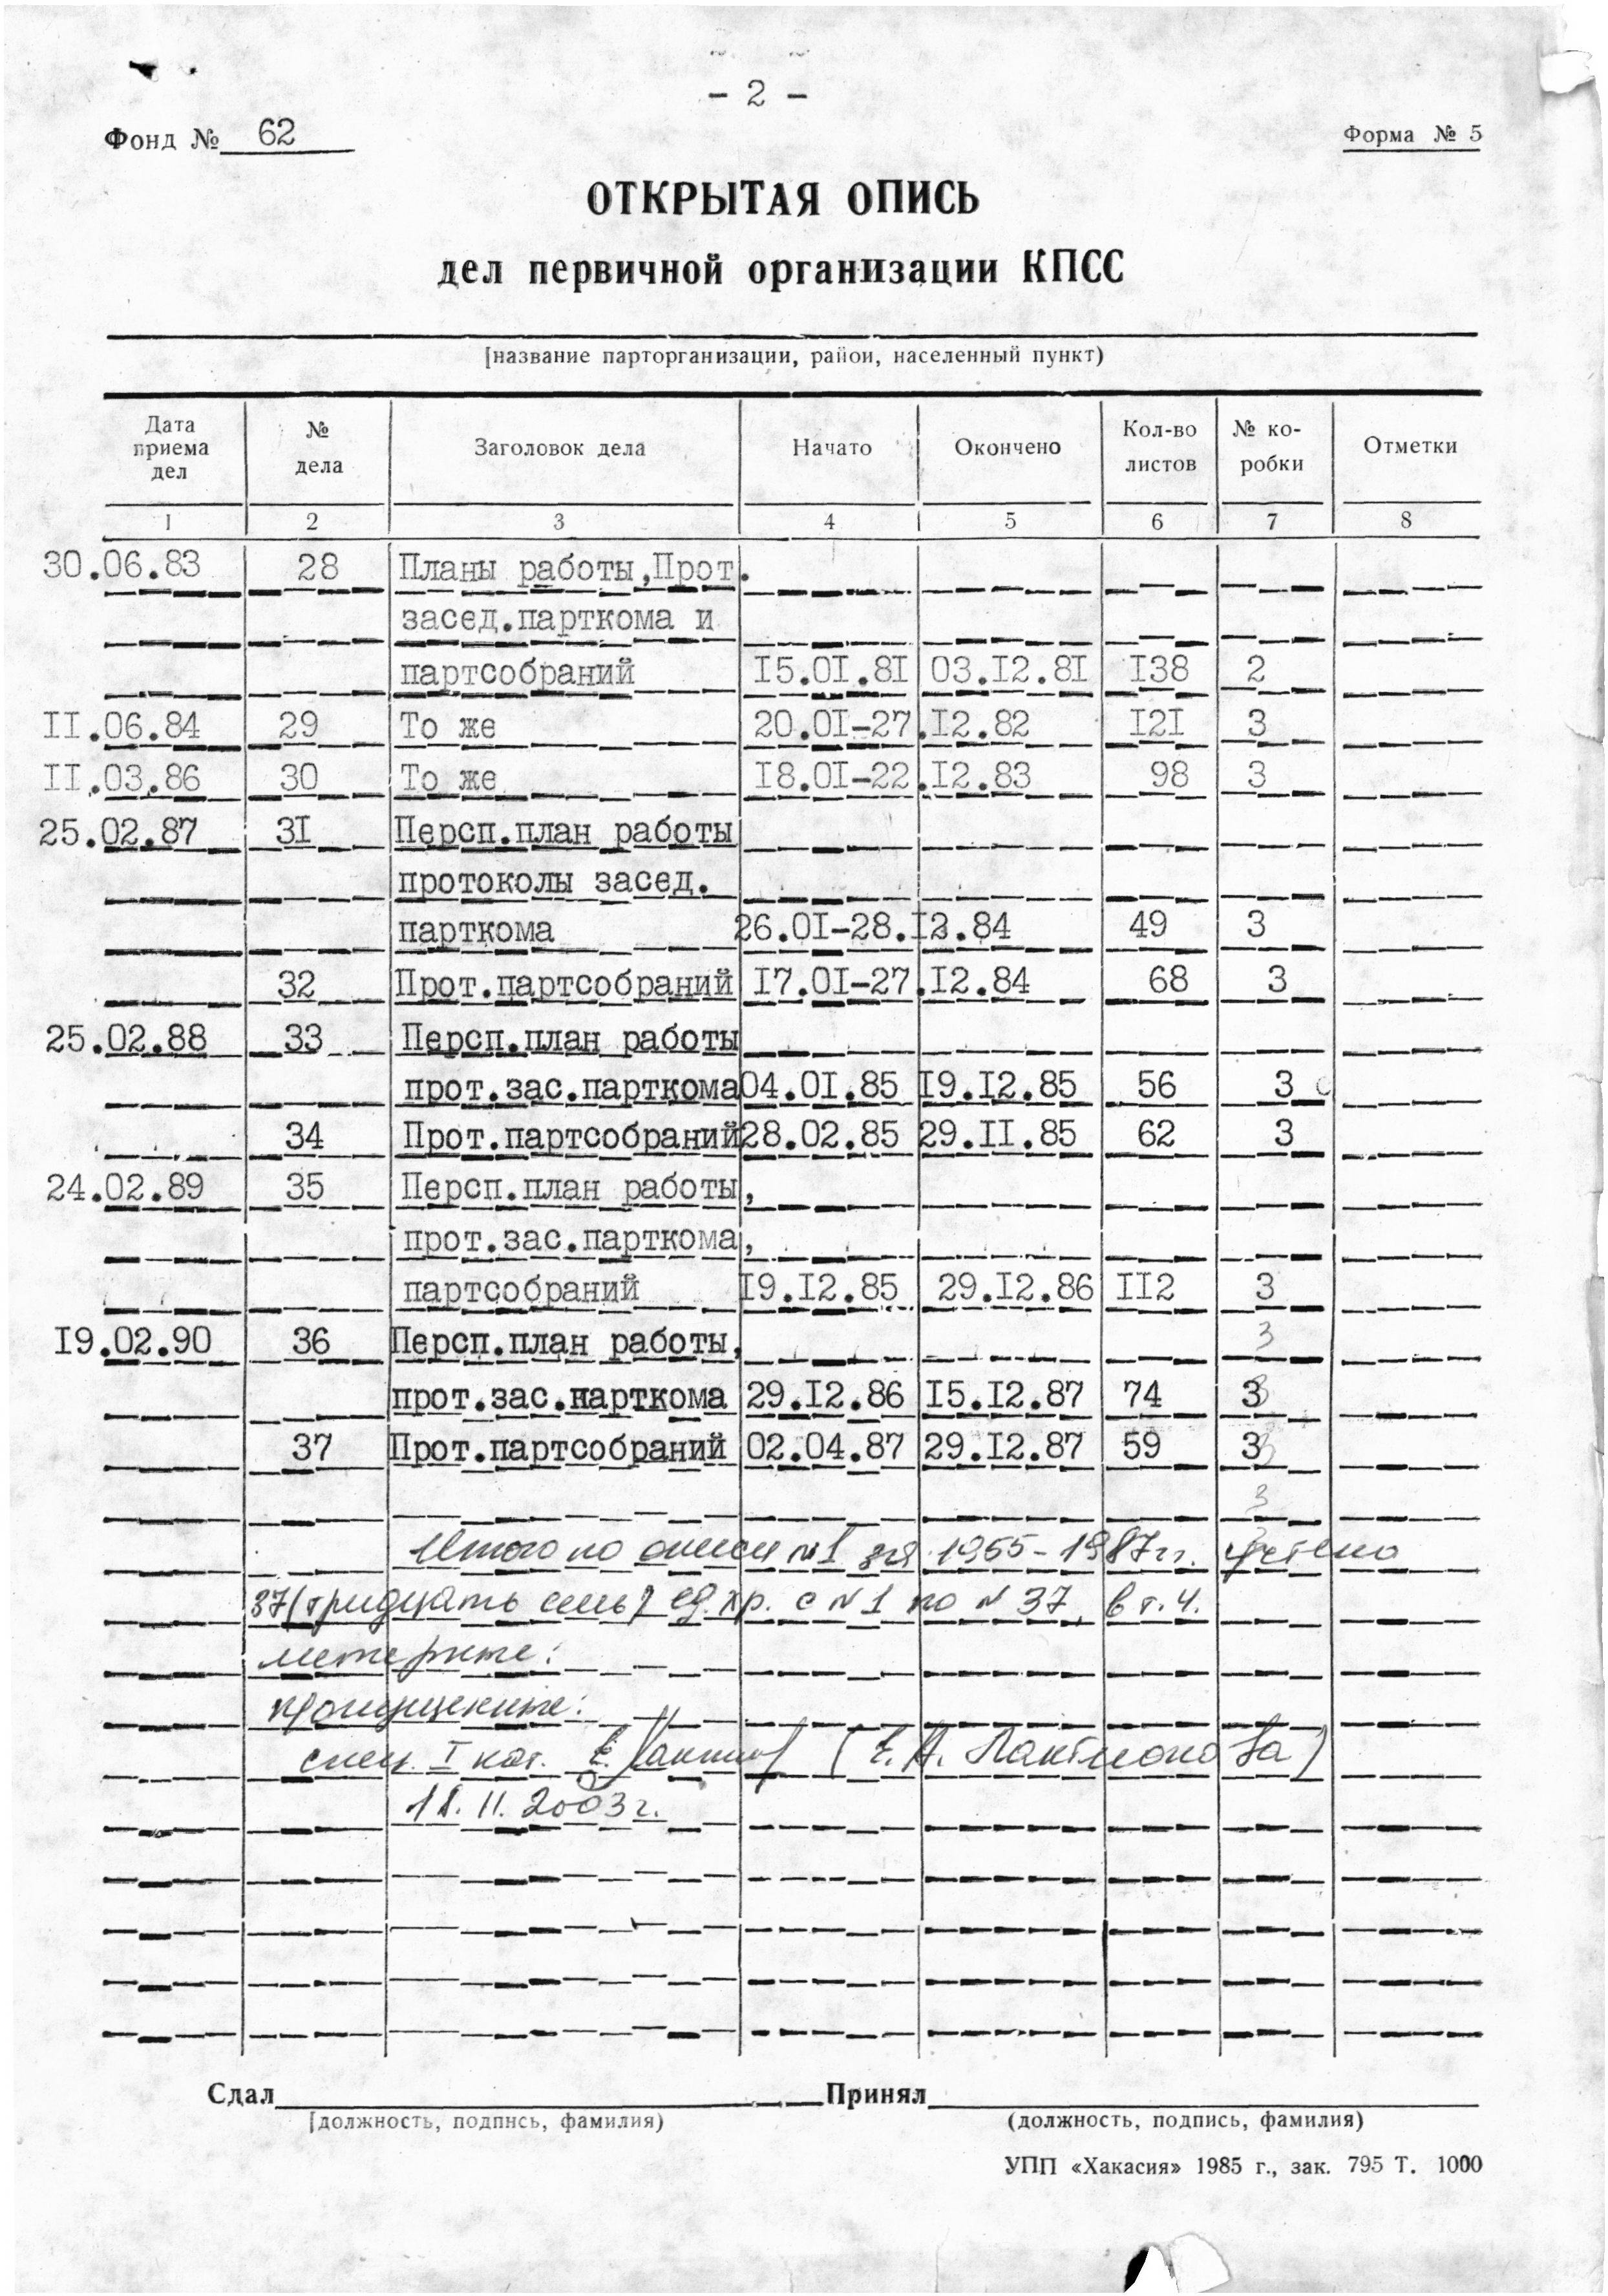 - 2 -
Фонд № 62
Форма № 5
ОТКРЫТАЯ ОПИСЬ
дел первичной организации КПСС
(название парторганизации, район, населенный пункт)
Дата приема дел № дела Заголовок дела Начато Окончено Кол-во листов № ко-робки Отметки
1 2 3 4 5 6 7 8
30.06.83 28 Планы работы,Прот.
засед.парткома и
партсобраний 15.01.81 03.12.81 138 2
11.06.84 29 То же 20.01-27.12.82 121 3
11.03.86 30 То же 18.01-22.12.83 98 3
25.02.87 31 Персп.план работы
протоколы засед.
парткома 26.01-28.12.84 49 3
32 Прот.партсобраний 17.01-27.12.84 68 3
25.02.88 33 Персп.план работы
прот.зас.парткома 04.01.85 19.12.85 56 3
34 Прот.партсобраний 28.02.85 29.11.85 62 3
24.02.89 35 Персп.план работы,
прот.зас.парткома,
партсобраний 19.12.85 29.12.86 112 3
19.02.90 36 Персп.план работы, 3
прот.зас.парткома 29.12.86 15.12.87 74 3
37 Прот.партсобраний 02.04.87 29.12.87 59 3
3
Итого по описи №1 за 1955-1987гг. учтено
37 (тридцать семь) ед.хр. с №1 по №37, в т.ч.
литерные:
пропущенные:
спец. I кат. (Е.А. Лактионова)
11.2003г.
Сдал Принял
(должность, подпись, фамилия) (должность, подпись, фамилия)
УПП «Хакасия» 1985 г., зак. 795 Т. 1000